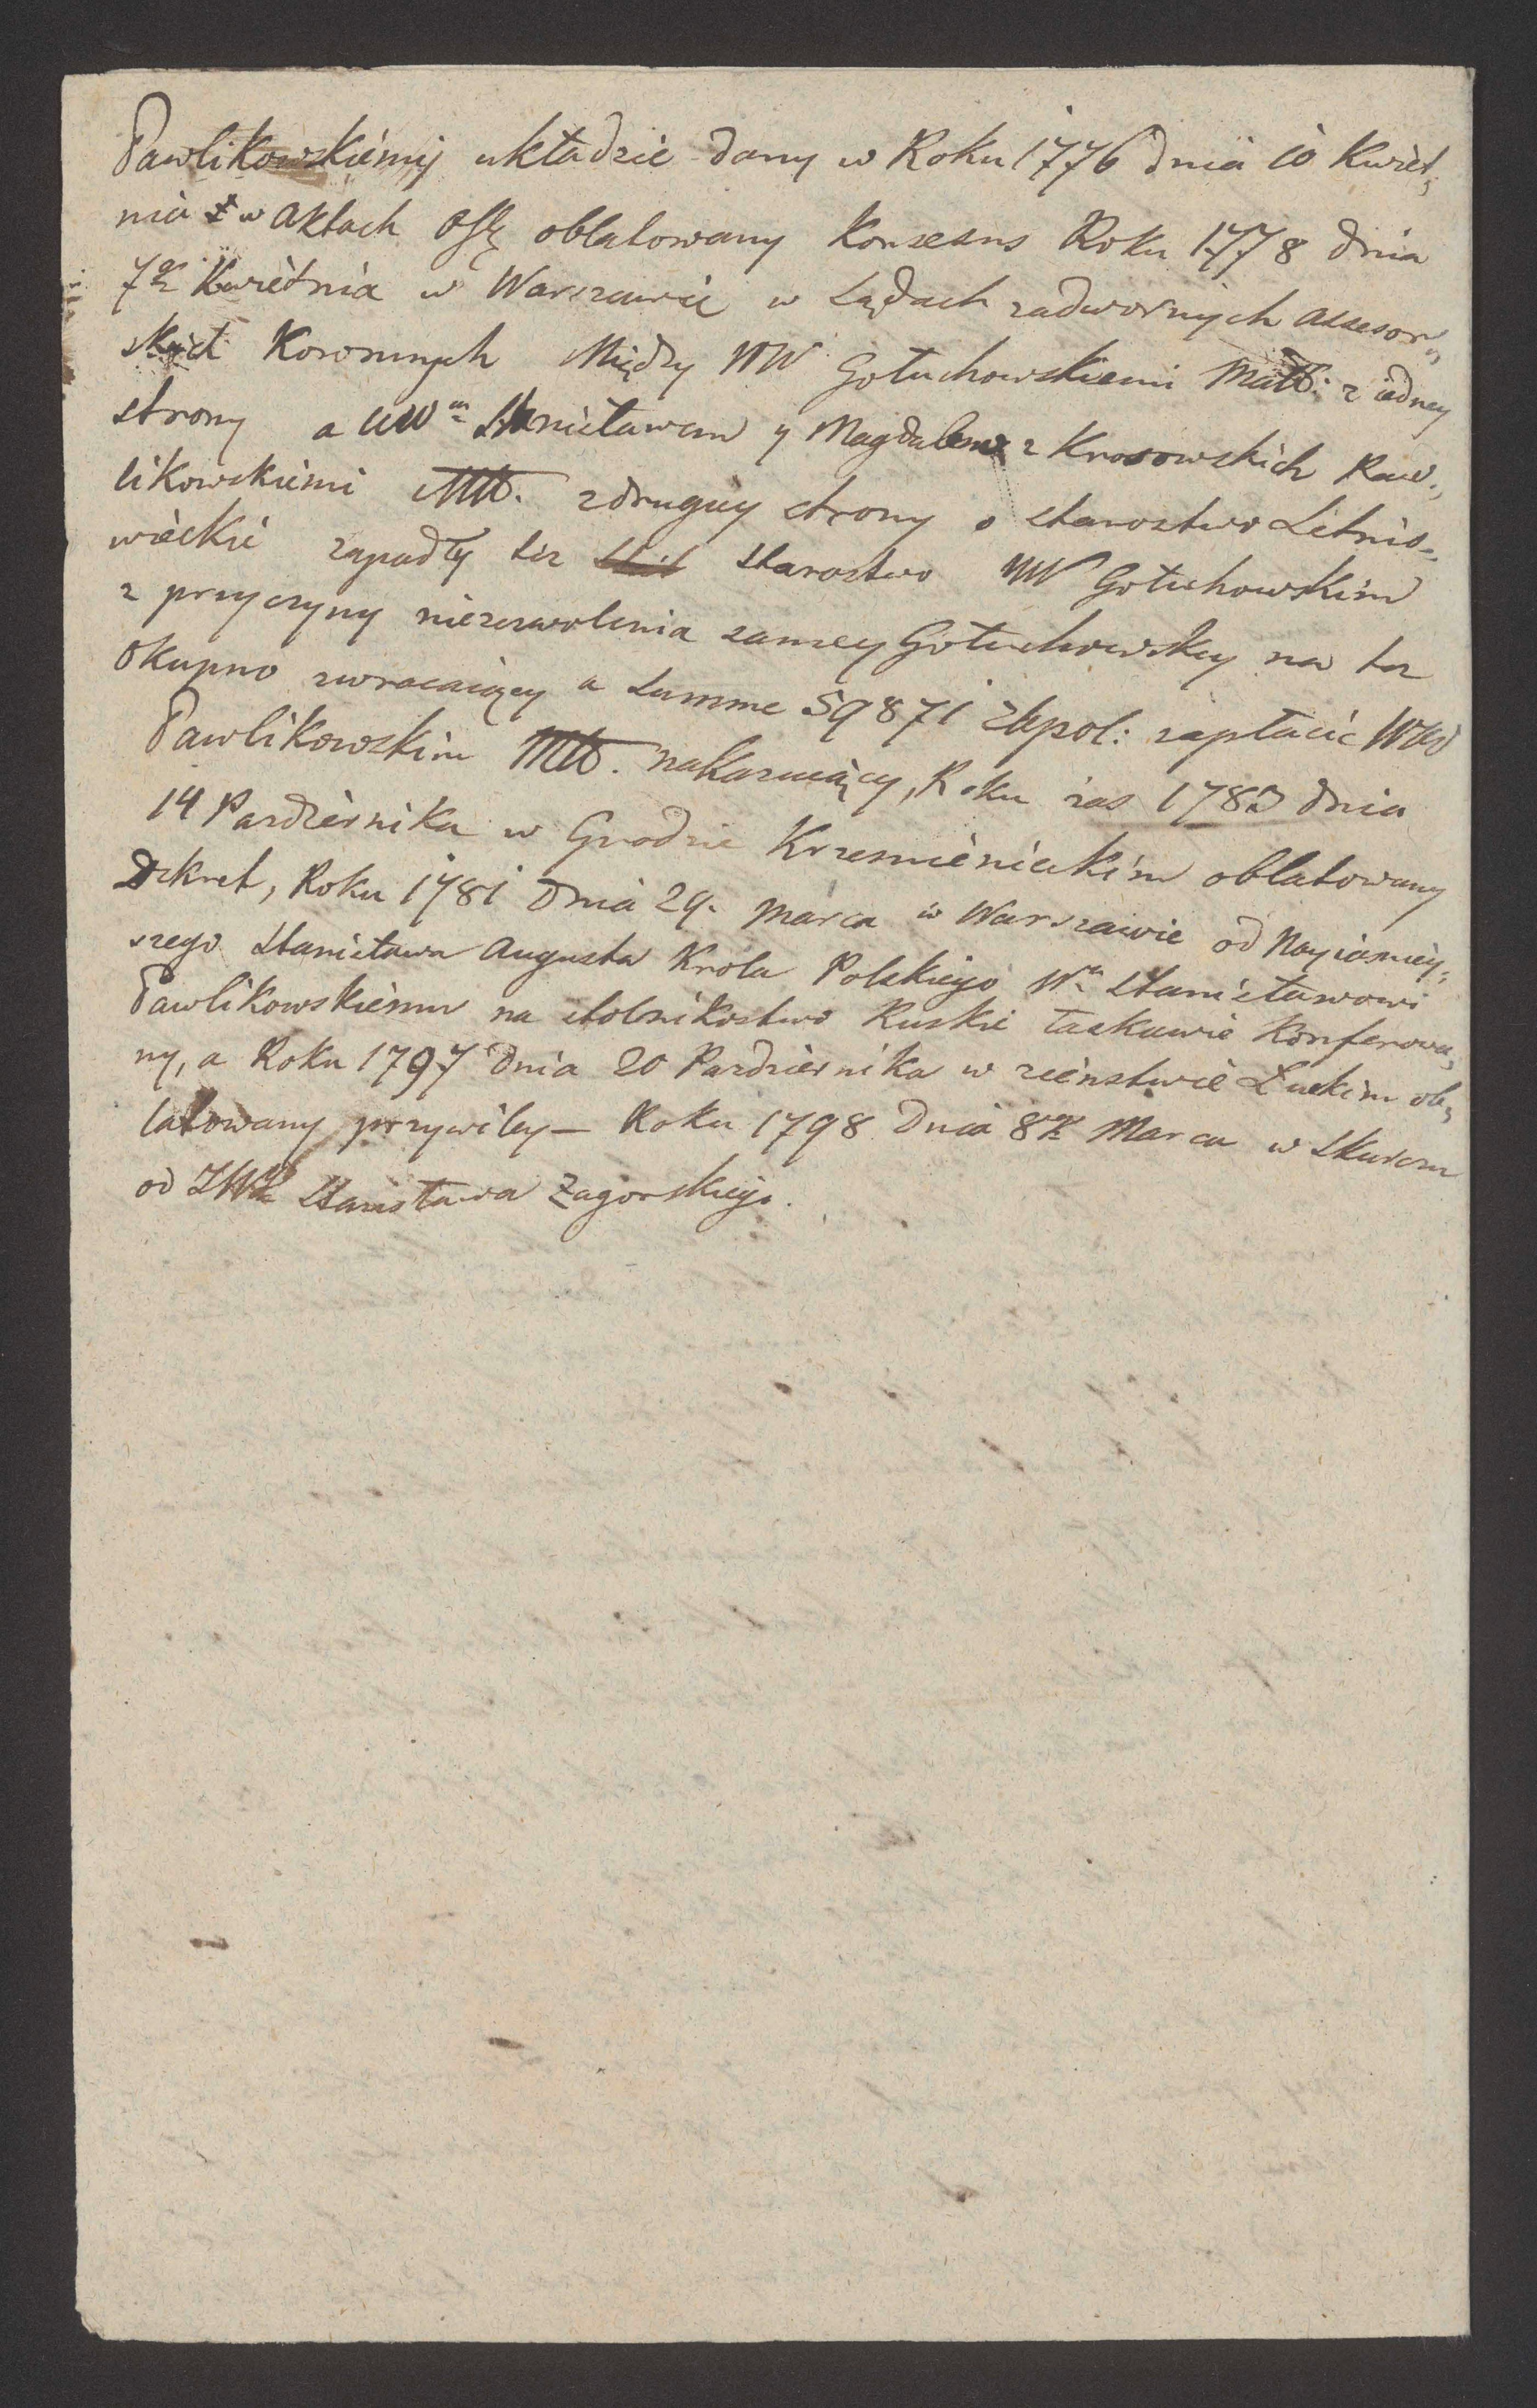 Pawlikowskiemy układzie dany w Roku 1776 dnia 10 Kwiet,
nia w aktach oblatowany Konsens Roku 1778 dnia
7go Kwietnia w Warszawie w Sądach zadwornych assesor,
skich Koronnych Między WW Gołuchowskiemi Małż: z iedney
strony a Stanisławem y Magdaleną z Krosowskich Paw,
likowskiemi Młł. zdrugiey strony o starostwo Letnio,
wieckie zapadły też starostwo WW Gołuchowskim
z przyczyny niezezwolenia samey Gołuchowskiey na to
okupno zwracaiący a summe 59871 złpol: zapłacić WW
Pawlikowskim Młł. nakazuiący, Roku zas 1783 dnia
14 Pazdziernika w Grodzie Krzemienieckim oblatowany
Dekret, Roku 1781 dnia 29. Marca w Warszawie od Nayiasniey,
szego Stanisława Augusta Krola Polskiego Wu Stanisławowi
Pawlikowskiemu na stolnikostwo Ruskie łaskawie konferowa,
ny, a Roku 1797 dnia 20 Pazdziernika w ziemstwie Łuckim ob,
latowany przywiley — Roku 1798 dnia 8go Marca w
od Stanisława Zagorskiego.